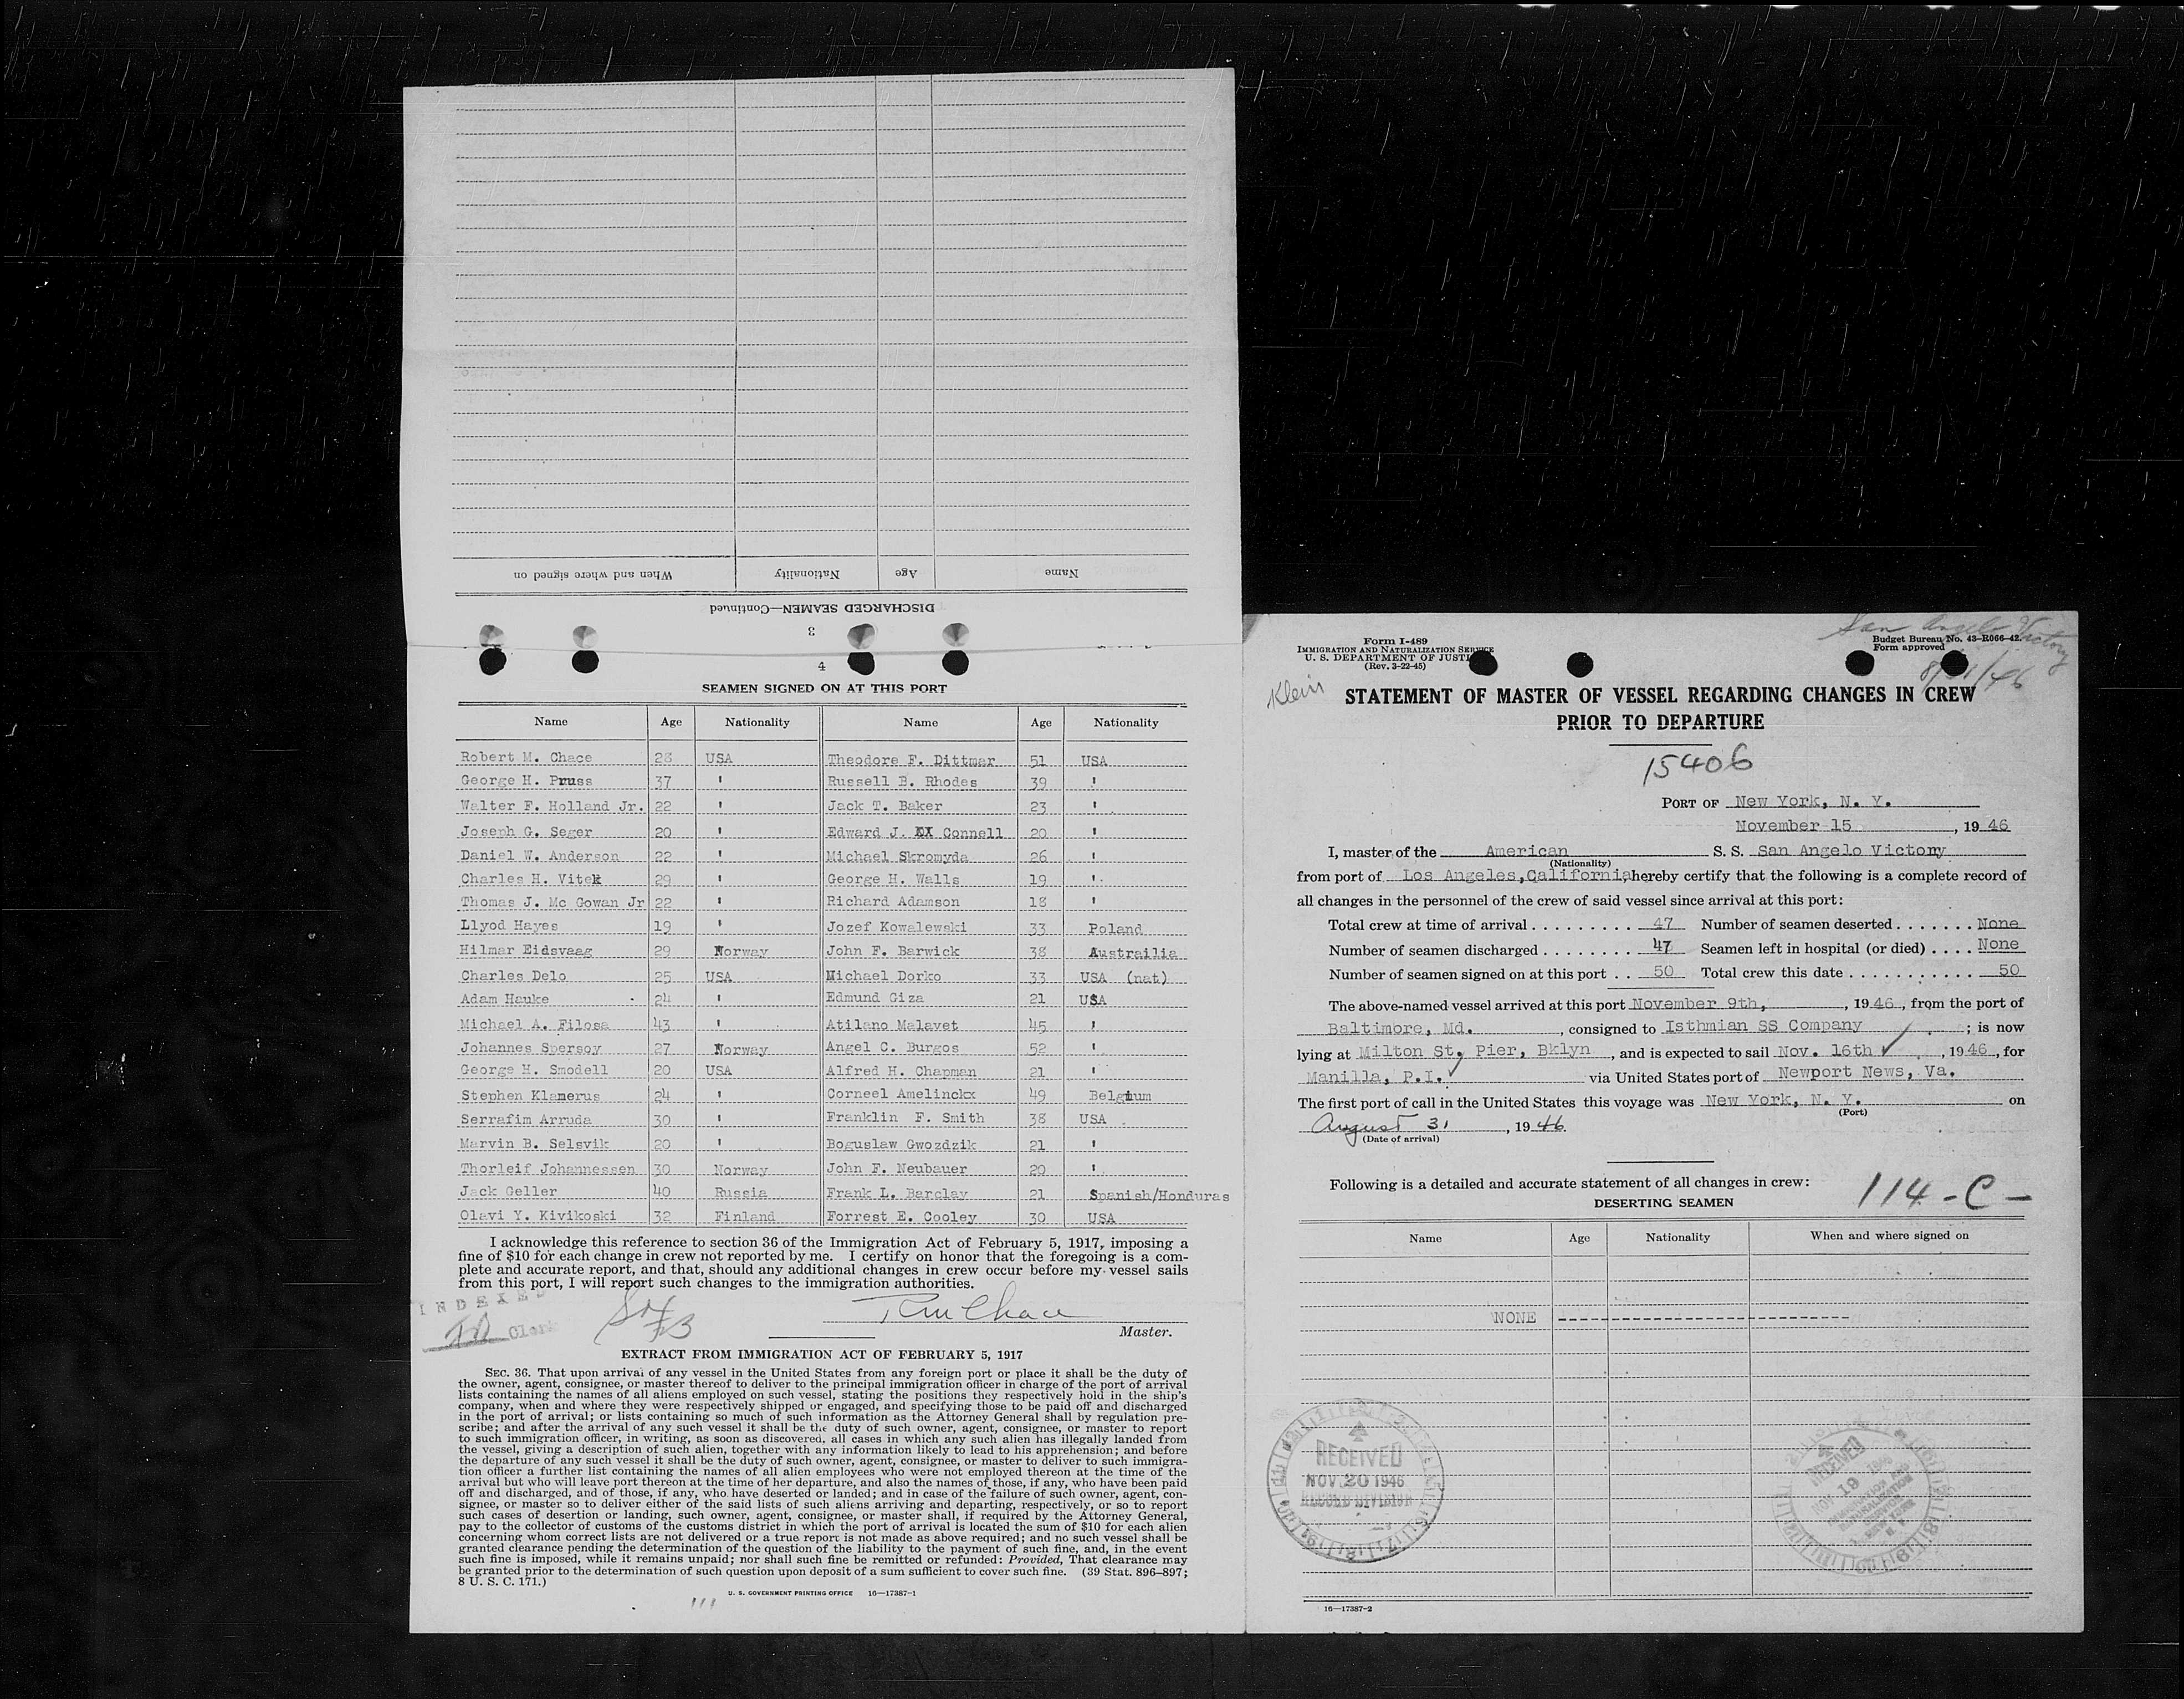 When and where signed on Nationality Age Name
DISCHARGED SEAMEN—Continued
3
4
SEAMEN SIGNED ON AT THIS PORT
Name Age Nationality Name Age Nationality
Robert M. Chace 28 USA Theodore F. Dittmar 51 USA
George H. Pruss 37 ' Russell B. Rhodes 39 '
Walter F. Holland Jr. 22 ' Jack T. Baker 23 '
Joseph G. Seger 20 ' Edward J. Connell 20 '
Daniel W. Anderson 22 ' Michael Skromyda 26 '
Charles H. Vitek 29 ' George H. Walls 19 '
Thomas J. Mc Gowan Jr 22 ' Richard Adamson 18 '
Llyod Hayes 19 ' Jozef Kowalewski 33 Poland
Hilmar Eidsvaag 29 Norway John F. Barwick 38 Austrailia
Charles Delo 25 USA Michael Dorko 33 USA (nat)
Adam Hauke 24 ' Edmund Giza 21 USA
Michael A. Filosa 43 ' Atilano Malavet 45 '
Johannes Spersoy 27 Norway Angel C. Burgos 52 '
George H. Smodell 20 USA Alfred H. Chapman 21 '
Stephen Klamerus 24 ' Corneel Amelinckx 49 Belgium
Serrafim Arruda 30 ' Franklin F. Smith 38 USA
Marvin B. Selsvik 20 ' Boguslaw Gwozdzik 21 '
Thorleif Johannessen 30 Norway John F. Neubauer 20 '
Jack Geller 40 Russia Frank L. Barclay 21 Spanish/Honduras
Olavi Y. Kivikoski 32 Finland Forrest E. Cooley 30 USA
I acknowledge this reference to section 36 of the Immigration Act of February 5, 1917, imposing a
fine of $10 for each change in crew not reported by me. I certify on honor that the foregoing is a com-
plete and accurate report, and that, should any additional changes in crew occur before my vessel sails
from this port, I will report such changes to the immigration authorities.
INDEXED
Clerk
Master.
EXTRACT FROM IMMIGRATION ACT OF FEBRUARY 5, 1917
SEC. 36. That upon arrival of any vessel in the United States from any foreign port or place it shall be the duty of
the owner, agent, consignee, or master thereof to deliver to the principal immigration officer in charge of the port of arrival
lists containing the names of all aliens employed on such vessel, stating the positions they respectively hold in the ship's
company, when and where they were respectively shipped or engaged, and specifying those to be paid off and discharged
in the port of arrival; or lists containing so much of such information as the Attorney General shall by regulation pre-
scribe; and after the arrival of any such vessel it shall be the duty of such owner, agent, consignee, or master to report
to such immigration officer, in writing, as soon as discovered, all cases in which any such alien has illegally landed from
the vessel, giving a description of such alien, together with any information likely to lead to his apprehension; and before
the departure of any such vessel it shall be the duty of such owner, agent, consignee, or master to deliver to such immigra-
tion officer a further list containing the names of all alien employees who were not employed thereon at the time of the
arrival but who will leave port thereon at the time of her departure, and also the names of those, if any, who have been paid
off and discharged, and of those, if any, who have deserted or landed; and in case of the failure of such owner, agent, con-
signee, or master so to deliver either of the said lists of such aliens arriving and departing, respectively, or so to report
such cases of desertion or landing, such owner, agent, consignee, or master shall, if required by the Attorney General,
pay to the collector of customs of the customs district in which the port of arrival is located the sum of $10 for each alien
concerning whom correct lists are not delivered or a true report is not made as above required; and no such vessel shall be
granted clearance pending the determination of the question of the liability to the payment of such fine, and, in the event
such fine is imposed, while it remains unpaid; nor shall such fine be remitted or refunded: Provided, That clearance may
be granted prior to the determination of such question upon deposit of a sum sufficient to cover such fine. (39 Stat. 896-897;
8 U. S. C. 171.)
U. S. GOVERNMENT PRINTING OFFICE 16—17387-1
San Angelo Victory
8/31/46
Klein
Form I-489
IMMIGRATION AND NATURALIZATION SERVICE
U. S. DEPARTMENT OF JUSTICE
(Rev. 3-22-45)
Budget Bureau No. 43-R066-42.
Form approved
STATEMENT OF MASTER OF VESSEL REGARDING CHANGES IN CREW
PRIOR TO DEPARTURE
15406
PORT OF New York, N. Y.
November 15, 1946
I, master of the American S. S. San Angelo Victory
(Nationality)
from port of Los Angeles, California hereby certify that the following is a complete record of
all changes in the personnel of the crew of said vessel since arrival at this port:
Total crew at time of arrival . . . . . . . . . . 47 Number of seamen deserted . . . . . . . None
Number of seamen discharged . . . . . . . . . 47 Seamen left in hospital (or died) . . . . None
Number of seamen signed on at this port . . 50 Total crew this date . . . . . . . . . . . 50
The above-named vessel arrived at this port November 9th, , 1946, from the port of
Baltimore, Md. , consigned to Isthmian SS Company ; is now
lying at Milton St, Pier, Bklyn , and is expected to sail Nov. 16th , 1946, for
Manilla, P.I. via United States port of Newport News, Va.
The first port of call in the United States this voyage was New York, N. Y. on
(Port)
August 31 , 1946.
(Date of arrival)
Following is a detailed and accurate statement of all changes in crew:
114-C-
DESERTING SEAMEN
Name Age Nationality When and where signed on
NONE
RECEIVED
NOV 20 1946
RECORD DIVISION
RECEIVED
NOV 19 1946
16—17387-2